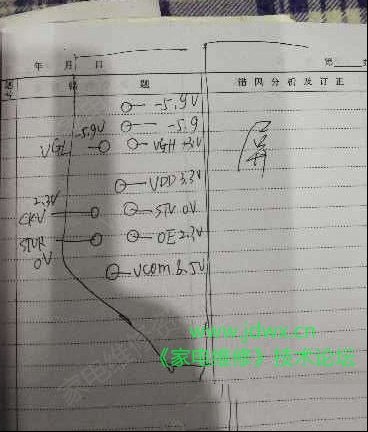 年 月 日
第 页
题号 错 题 错因分析及订正
-5.9V
-5.9V -5.9
VGL VGH +3V
屏
VDD 3.3V
2.3V
CKV STV 0V
STVR OE 2.3V
0V
Vcom 6.5V
www.jdwx.cn
《家电维修》技术论坛